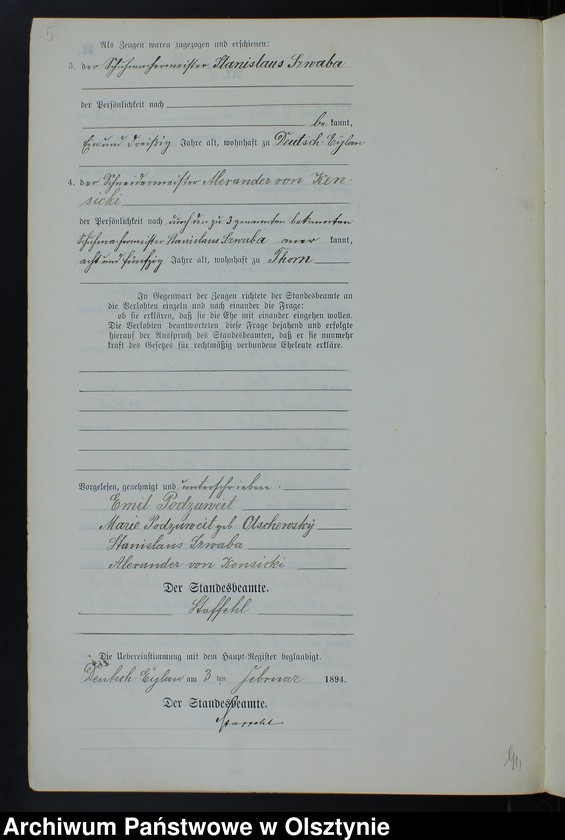 5
Als Zeugen waren zugezogen und erschienen:
3. der Schuhmachermeister Stanislaus Szwaba
der Persönlichkeit nach
be kannt,
Ein und dreißig Jahre alt, wohnhaft zu Deutsch-Eylau
4. der Schneidermeister Alexander von Ken-
sicki
der Persönlichkeit nach durch den zu 3 genannten bekannten
Schuhmachermeister Stanislaus Szwaba aner kannt,
acht und fünfzig Jahre alt, wohnhaft zu Thorn
In Gegenwart der Zeugen richtete der Standesbeamte an
die Verlobten einzeln und nach einander die Frage:
ob sie erklären, daß sie die Ehe mit einander eingehen wollen.
Die Verlobten beantworteten diese Frage bejahend und erfolgte
hierauf der Ausspruch des Standesbeamten, daß er sie nunmehr
kraft des Gesetzes für rechtmäßig verbundene Eheleute erkläre.
Vorgelesen, genehmigt und unterschrieben.
Emil Podzuweit
Marie Podzuweit geb. Olschewsky
Stanislaus Szwaba
Alexander von Kensicki
Der Standesbeamte.
Staffehl
Die Uebereinstimmung mit dem Haupt-Register beglaubigt.
Deutsch-Eylau am 3 ten Februar 1894.
Der Standesbeamte.
Staffehl
Archiwum Państwowe w Olsztynie